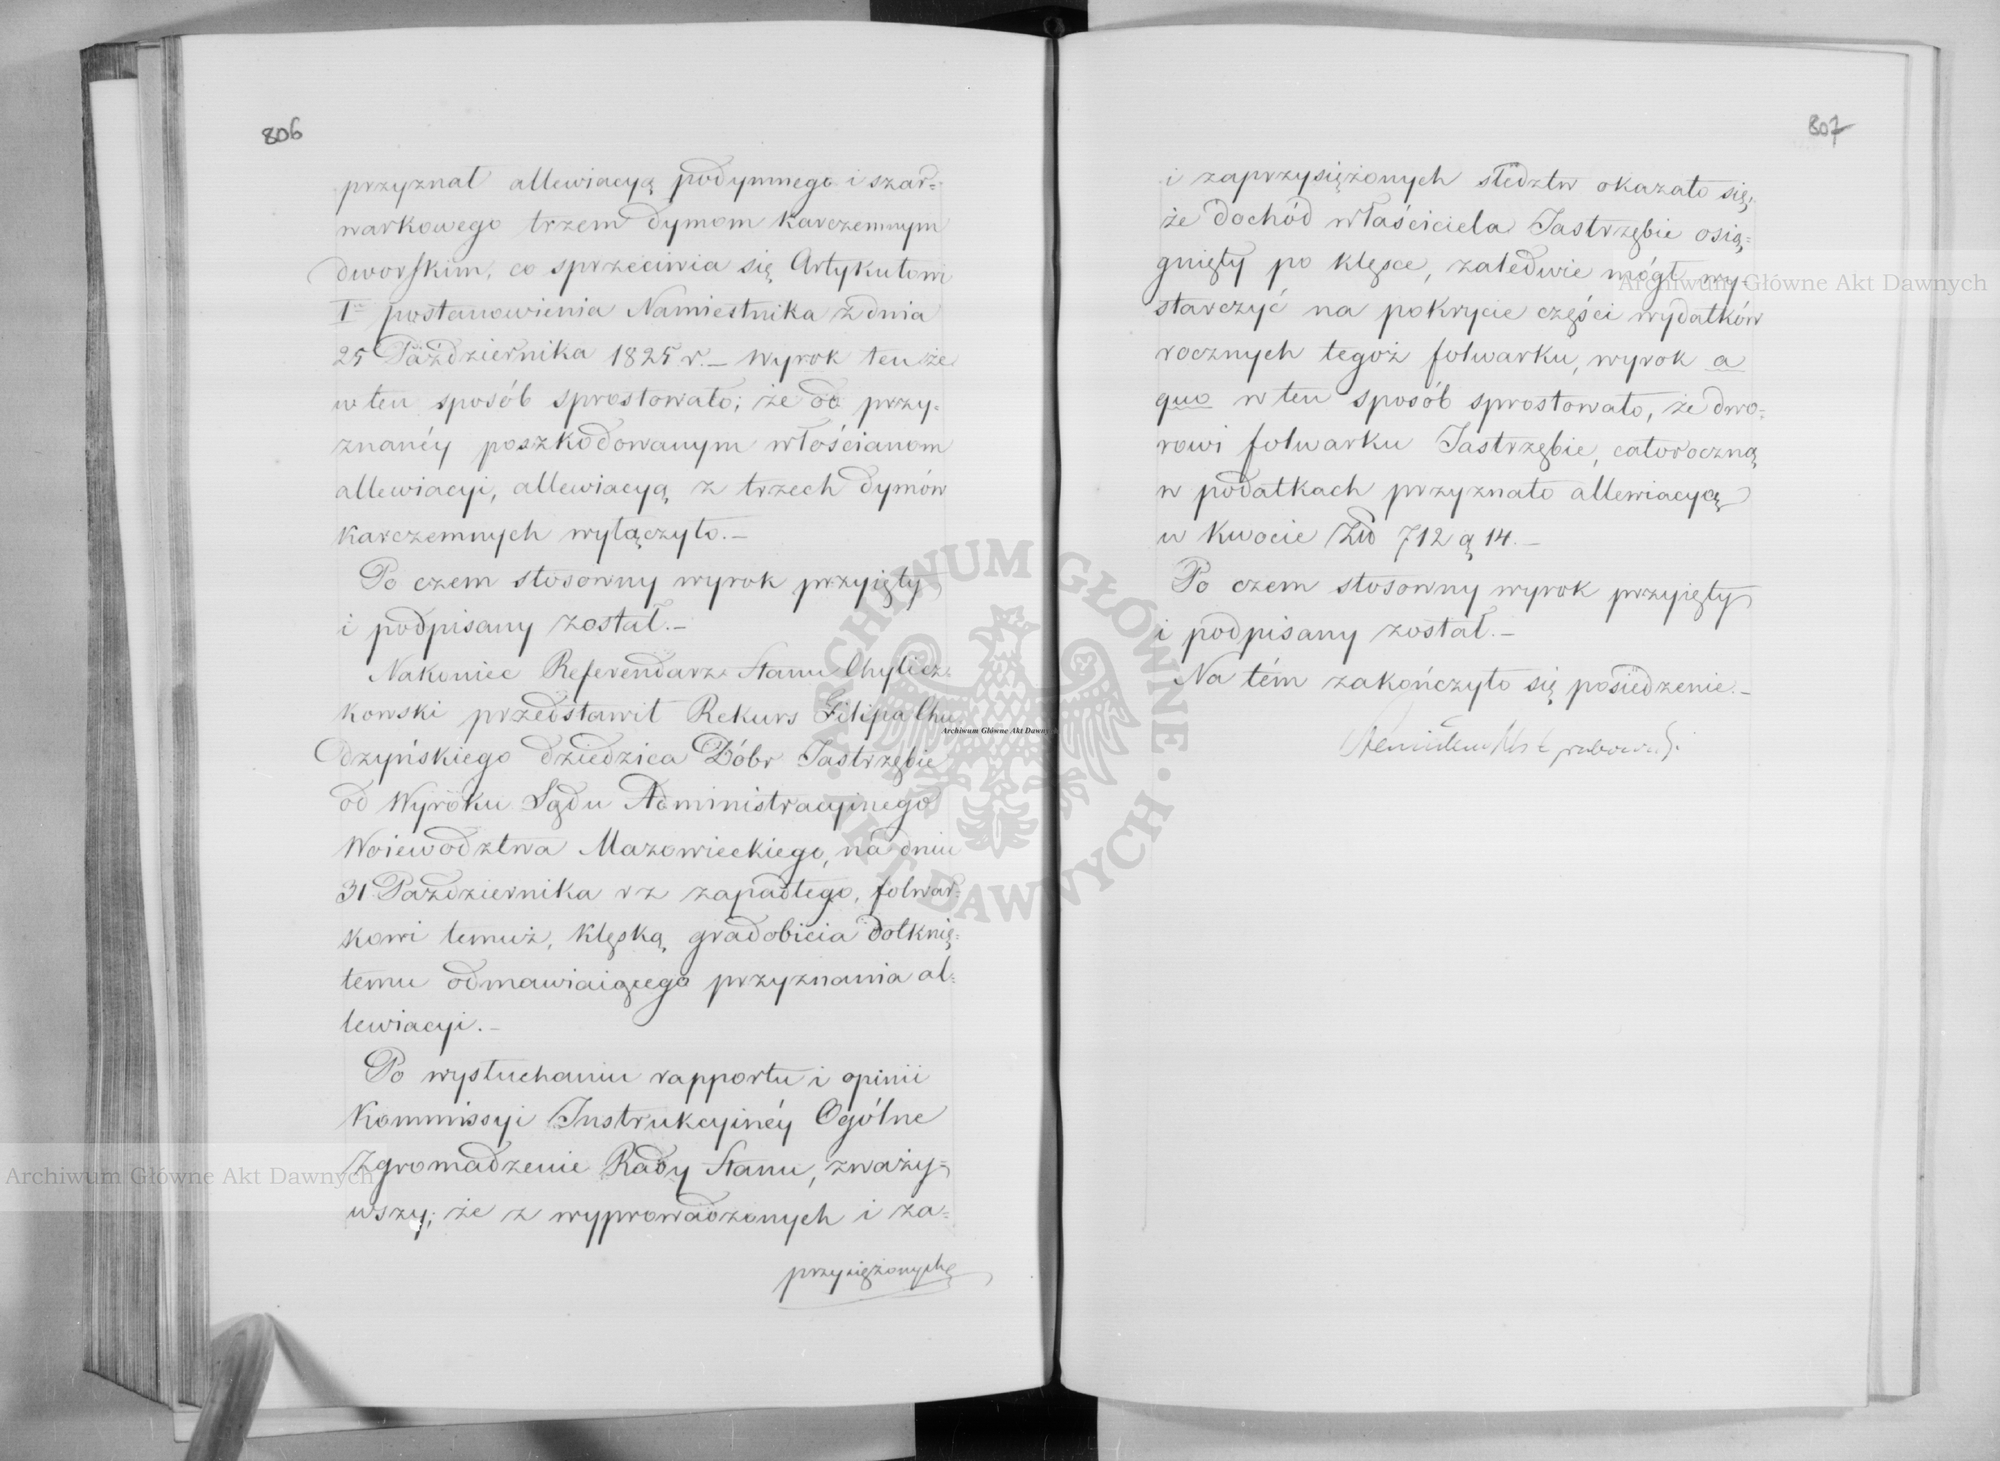 806
przyznał allewiacyą podymnego i szar=
warkowego trzem dymom karczemnym
dworskim, co sprzeciwia się Artykułowi
I postanowienia Namiestnika z dnia
25 Października 1825 r. — Wyrok ten że
w ten sposób sprostowało; że od przy-
znanéy poszkodowanym włościanom
allewiacyi, allewiacyą z trzech dymów
karczemnych wyłączyło. —
Po czem stosowny wyrok przyięty
i podpisany został. —
Nakoniec Referendarz Stanu Chylicz-
kowski przedstawił Rekurs Filipa Chu
dzyńskiego dziedzica Dóbr Jastrzębie
od Wyroku Sądu Administracyinego
Woiewództwa Mazowieckiego, na dniu
31 Października r z zapadłego, folwar=
kowi temuż, klęską gradobicia dotknię=
temu odmawiaiącego przyznania al=
lewiacyi. —
Po wysłuchaniu rapportu i opinii
Kommissyi Instrukcyinéy Ogólne
Zgromadzenie Rady Stanu, zważy=
wszy; że z wyprowadzonych i za=
przysiężonych
807
i zaprzysiężonych śledztw okazało się,
że dochód właściciela Jastrzębie osią=
gnięty po klęsce, zaledwie mógł wy-
starczyć na pokrycie części wydatków
rocznych tegoż folwarku, wyrok a
quo w ten sposób sprostowało, że dwo=
rowi folwarku Jastrzębie, całoroczną
w podatkach przyznało allewiacyą
w kwocie Złp 712 g 14. —
Po czem stosowny wyrok przyięty
i podpisany został. —
Na tém zakończyło się posiedzenie. —
Archiwum Główne Akt Dawnych
Archiwum Główne Akt Dawnych
Archiwum Główne Akt Dawnych
ARCHIWUM GŁÓWNE · AKT DAWNYCH ·